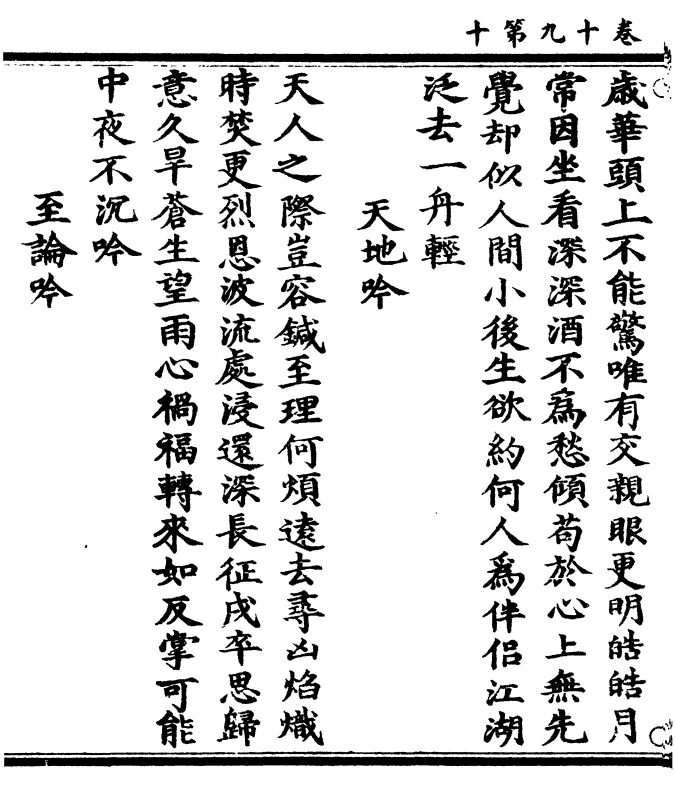 卷十九第十
歲華頭上不能驚唯有交親眼更明皓皓月
常因坐看深深酒不為愁傾苟於心上無先
覺却似人間小後生欲約何人為伴侶江湖
泛去一舟輕
天地吟
天人之際豈容鍼至理何煩遠去尋凶焰熾
時焚更烈恩波流處浸還深長征戍卒思歸
意久旱蒼生望雨心禍福轉來如反掌可能
中夜不沉吟
至論吟